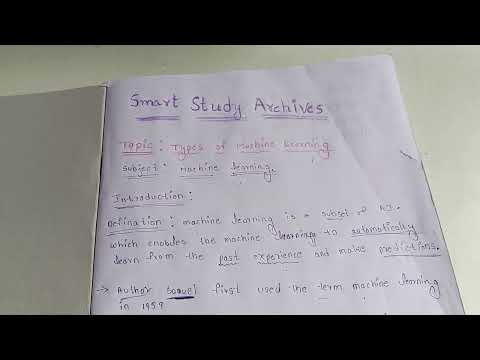 Smart Study Archives
Topic : Types of Machine Learning
Subject : Machine learning.
Introduction :
Defination : machine learning is a subset of A.I.
which enables the machine learning to automatically
learn from the past experience and make predictions.
→ Author Samuel first used the term machine learning
in 1959